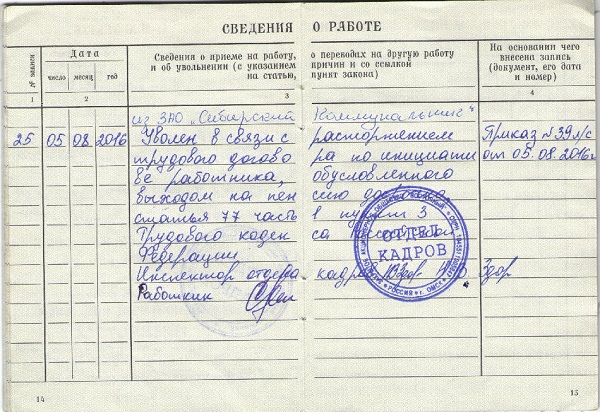 СВЕДЕНИЯ О РАБОТЕ
№ записи
Дата
Сведения о приеме на работу, о переходах на другую работу
и об увольнении (с указанием причин и со ссылкой
на статью, пункт закона)
На основании чего
внесена запись
(документ, его дата
и номер)
число месяц год
1 2 3 4
из ЗАО „Сибирский Коммунальник"
25 05 08 2016 Уволен в связи с расторжением Приказ №39 л/с
трудового догово ра по инициати от 05.08.2016г
ве работника, обусловленного
выходом на пен сию
статья 77 часть пункт 3
Трудового кодек са
Федерации
Инспектор отдела кадров Здор
Работник
ОТДЕЛ
КАДРОВ
РОССИЯ г. ОМСК
14 15